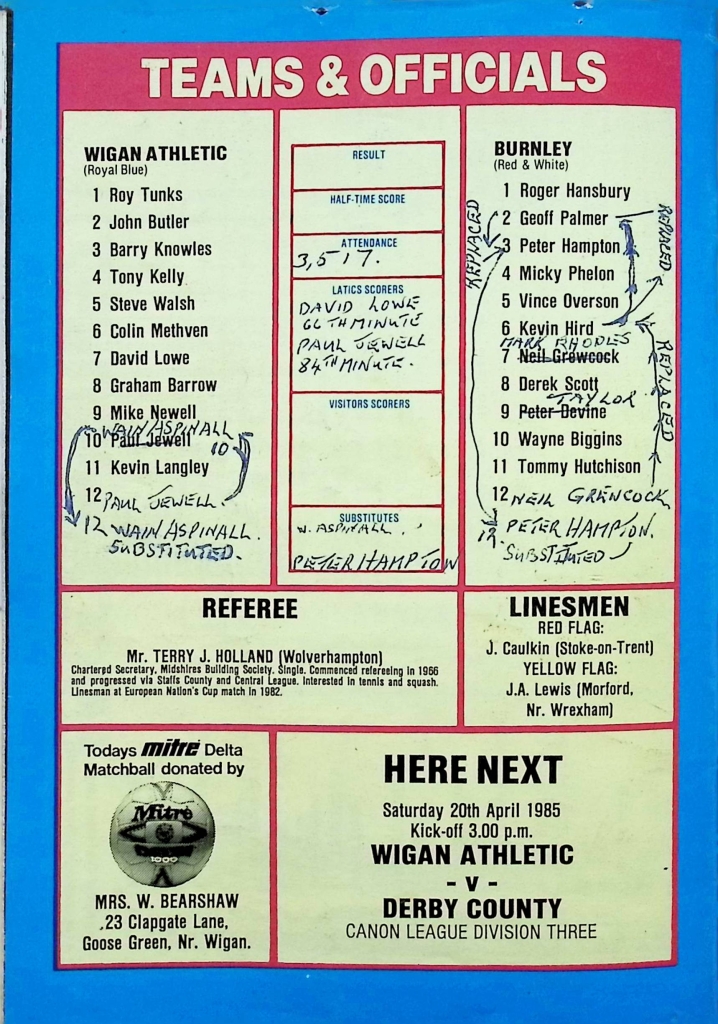 TEAMS & OFFICIALS
WIGAN ATHLETIC
(Royal Blue)
1 Roy Tunks
2 John Butler
3 Barry Knowles
4 Tony Kelly
5 Steve Walsh
6 Colin Methven
7 David Lowe
8 Graham Barrow
9 Mike Newell
WAIN ASPINALL
10 Paul Jewell
10
11 Kevin Langley
12 PAUL JEWELL.
12 WAIN ASPINALL.
SUBSTITUTED.
RESULT
HALF-TIME SCORE
ATTENDANCE
3,517.
LATICS SCORERS
DAVID LOWE
66TH MINUTE
PAUL JEWELL
84TH MINUTE.
VISITORS SCORERS
SUBSTITUTES
W. ASPINALL.
PETER HAMPTON
BURNLEY
(Red & White)
1 Roger Hansbury
2 Geoff Palmer
3 Peter Hampton
4 Micky Phelon
5 Vince Overson
6 Kevin Hird
MARK RHODES
7 Neil Grewcock
8 Derek Scott
TAYLOR
9 Peter Devine
10 Wayne Biggins
11 Tommy Hutchison
12 NEIL GRENCOCK
12. PETER HAMPTON.
SUBSTITUTED
REPLACED
REPLACED
REPLACED
REFEREE
Mr. TERRY J. HOLLAND (Wolverhampton)
Chartered Secretary, Midshires Building Society. Single. Commenced refereeing in 1966
and progressed via Staffs County and Central League. Interested in tennis and squash.
Linesman at European Nation's Cup match in 1982.
LINESMEN
RED FLAG:
J. Caulkin (Stoke-on-Trent)
YELLOW FLAG:
J.A. Lewis (Morford,
Nr. Wrexham)
Todays mitre Delta
Matchball donated by
Mitre
1000
MRS. W. BEARSHAW
23 Clapgate Lane,
Goose Green, Nr. Wigan.
HERE NEXT
Saturday 20th April 1985
Kick-off 3.00 p.m.
WIGAN ATHLETIC
- v -
DERBY COUNTY
CANON LEAGUE DIVISION THREE